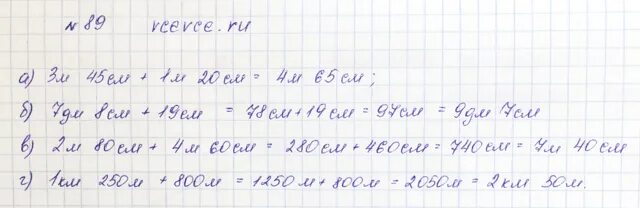 № 89 vcevce.ru
а) 3м 45см + 1м 20см = 4м 65см;
б) 7дм 8см + 19см = 78см + 19см = 97см = 9дм 7см
в) 2м 80см + 4м 60см = 280см + 460см = 740см = 7м 40см
г) 1км 250м + 800м = 1250м + 800м = 2050м = 2км 50м.